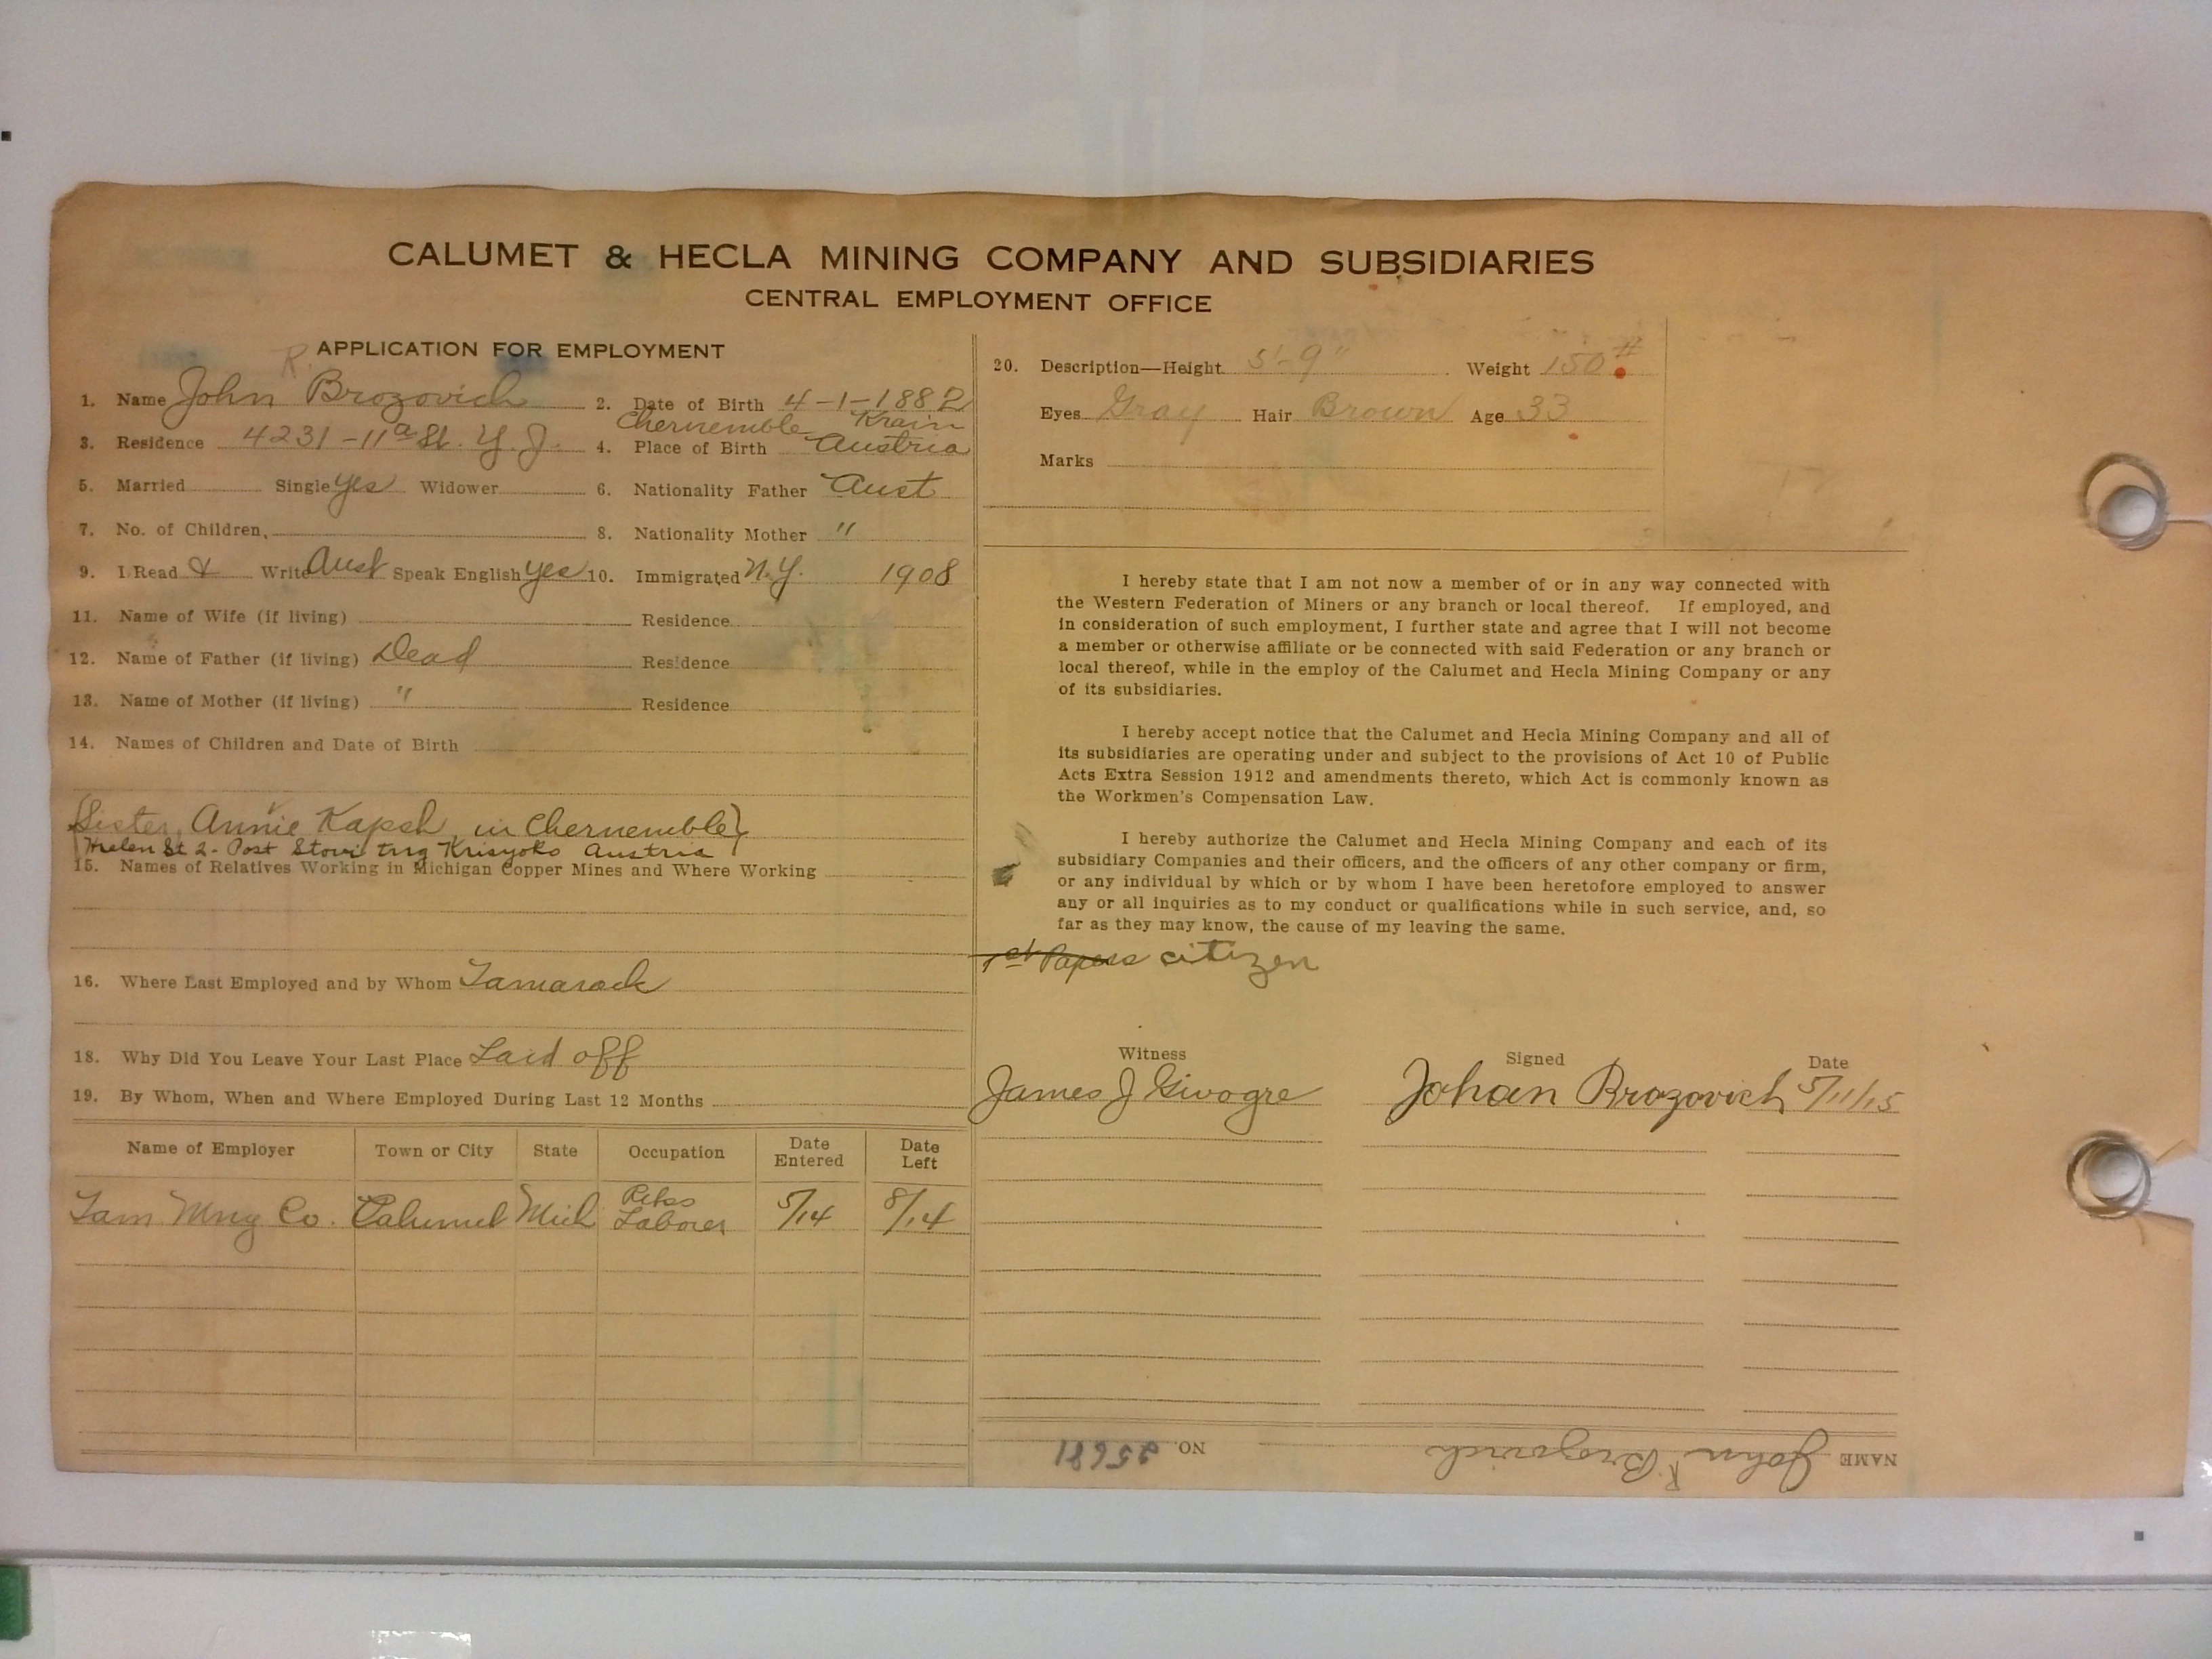 CALUMET & HECLA MINING COMPANY AND SUBSIDIARIES
CENTRAL EMPLOYMENT OFFICE
R. APPLICATION FOR EMPLOYMENT
1. Name John Brozovich 2. Date of Birth 4-1-1882
Chernemble Krain
3. Residence 4231-11a St. Y. J. 4. Place of Birth Austria
5. Married Single Yes Widower 6. Nationality Father Aust
7. No. of Children, 8. Nationality Mother "
9. I Read & Write Aust Speak English yes 10. Immigrated N.Y. 1908
11. Name of Wife (if living) Residence
12. Name of Father (if living) Dead Residence
13. Name of Mother (if living) " Residence
14. Names of Children and Date of Birth
(Sister, Annie Kapsh, in Chernemble)
St 2- Post Austria
15. Names of Relatives Working in Michigan Copper Mines and Where Working
16. Where Last Employed and by Whom Tamarack
18. Why Did You Leave Your Last Place Laid off
19. By Whom, When and Where Employed During Last 12 Months
Name of Employer Town or City State Occupation Date Entered Date Left
Tam Mng Co. Calumet Mich Laborer 5/14 8/14
20. Description—Height 5'-9" Weight 150#
Eyes Gray Hair Brown Age 33
Marks
I hereby state that I am not now a member of or in any way connected with
the Western Federation of Miners or any branch or local thereof. If employed, and
in consideration of such employment, I further state and agree that I will not become
a member or otherwise affiliate or be connected with said Federation or any branch or
local thereof, while in the employ of the Calumet and Hecla Mining Company or any
of its subsidiaries.
I hereby accept notice that the Calumet and Hecla Mining Company and all of
its subsidiaries are operating under and subject to the provisions of Act 10 of Public
Acts Extra Session 1912 and amendments thereto, which Act is commonly known as
the Workmen's Compensation Law.
I hereby authorize the Calumet and Hecla Mining Company and each of its
subsidiary Companies and their officers, and the officers of any other company or firm,
or any individual by which or by whom I have been heretofore employed to answer
any or all inquiries as to my conduct or qualifications while in such service, and, so
far as they may know, the cause of my leaving the same.
1st Papers citizen
Witness Signed Date
James J Givogre Johan Brozovich 5/11/15
NAME John R Brozovich NO. 25681